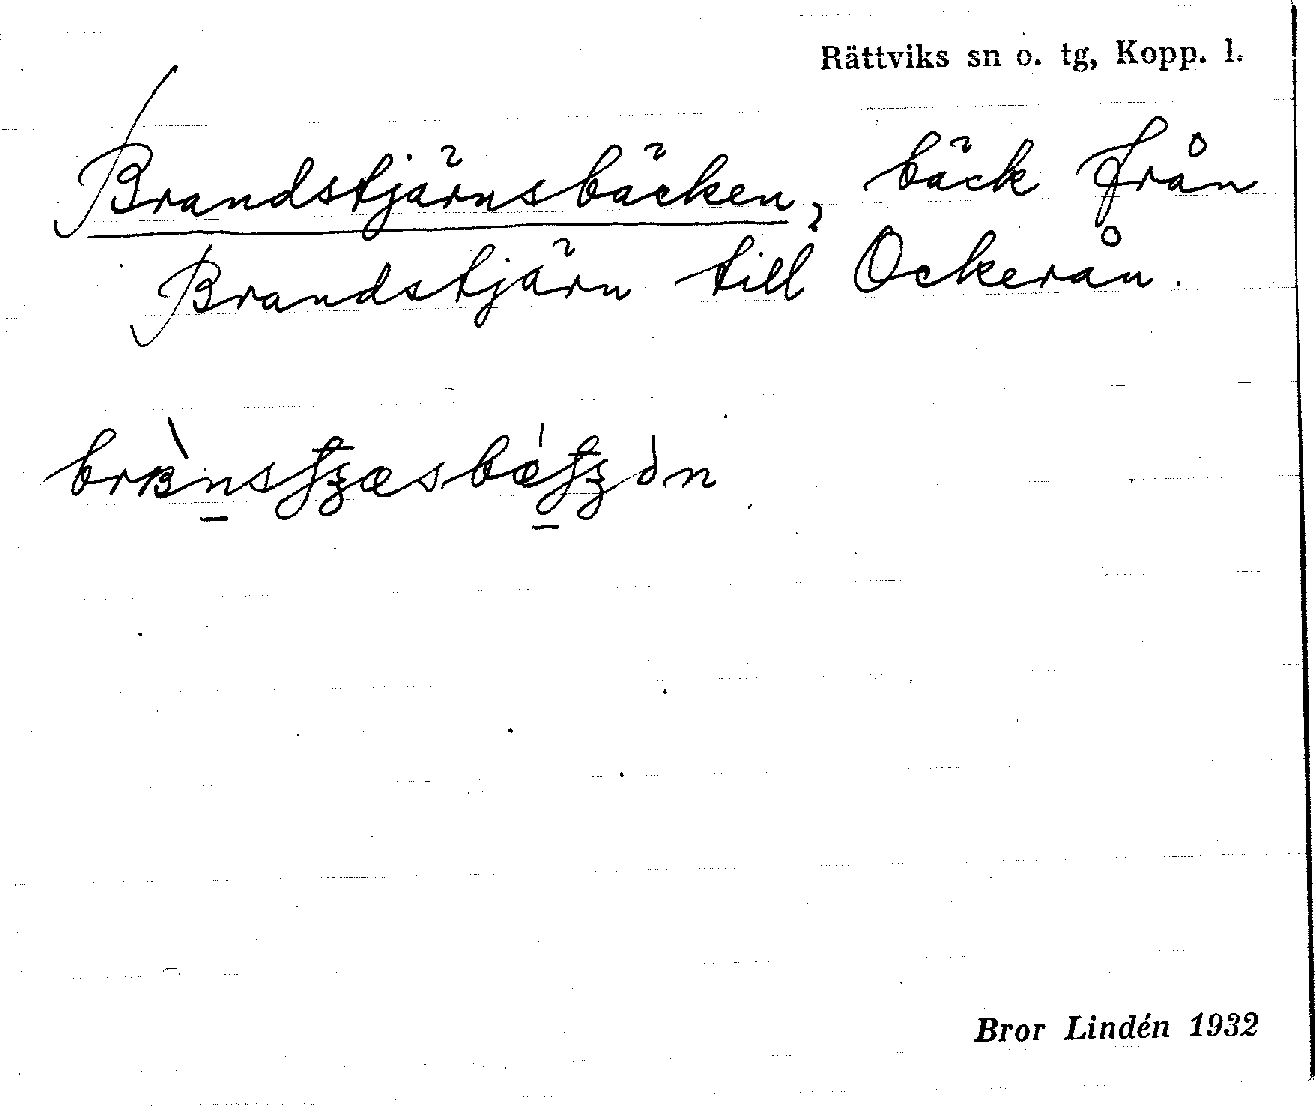 Rättviks sn o. tg, Kopp. l.
Brandstjärnsbäcken, bäck från
Brandstjärn till Ockerån.
Bror Lindén 1932